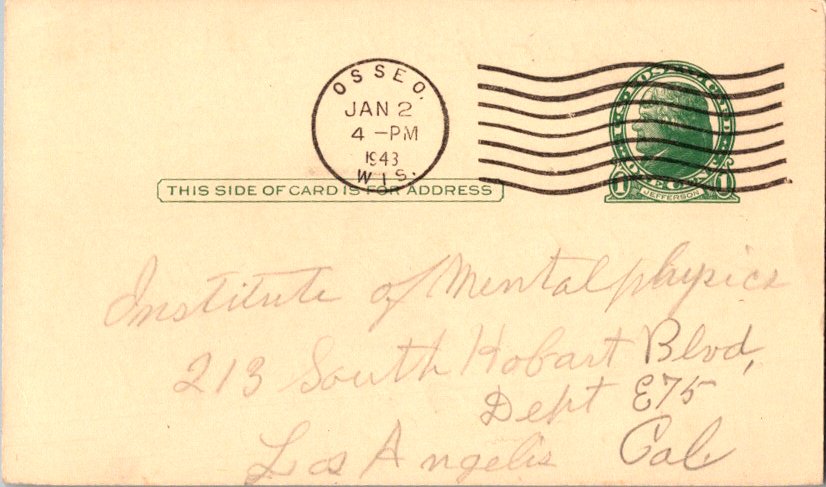 OSSEO.
JAN 2
4 -PM
1943
WIS.
U.S. POSTAL CARD
ONE CENT
1 JEFFERSON 1
THIS SIDE OF CARD IS FOR ADDRESS
Institute of Mentalphysics
213 South Hobart Blvd,
Dept E75
Los Angelis Cal